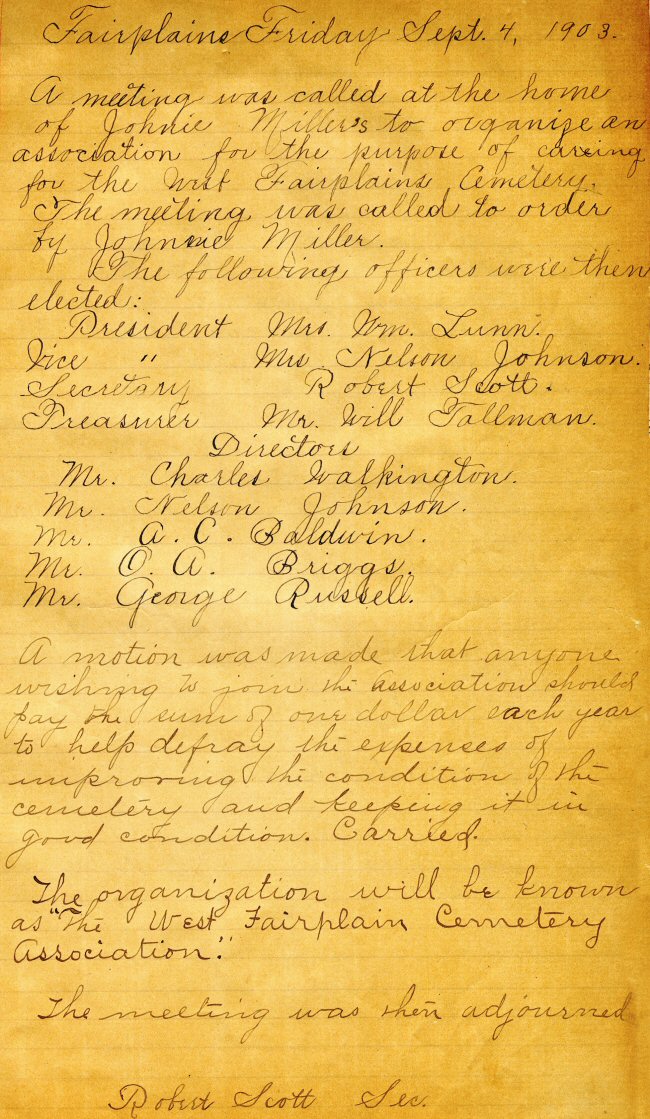 Fairplains Friday Sept. 4, 1903.
A meeting was called at the home
of Johnie Miller's to organize an
association for the purpose of careing
for the West Fairplains Cemetery.
The meeting was called to order
by Johnnie Miller.
The following officers were then
elected:
President Mrs. Wm. Lunn.
Vice " Mrs Nelson Johnson.
Secretary Robert Scott.
Treasurer Mr. Will Tallman.
Directors
Mr. Charles Walkington.
Mr. Nelson Johnson.
Mr. A. C. Baldwin.
Mr. O. A. Briggs.
Mr. George Russell.
A motion was made that anyone
wishing to join the association should
pay the sum of one dollar each year
to help defray the expenses of
improving the condition of the
cemetery and keeping it in
good condition. Carried.
The organization will be known
as "The West Fairplain Cemetery
Association".
The meeting was then adjourned
Robert Scott Sec.